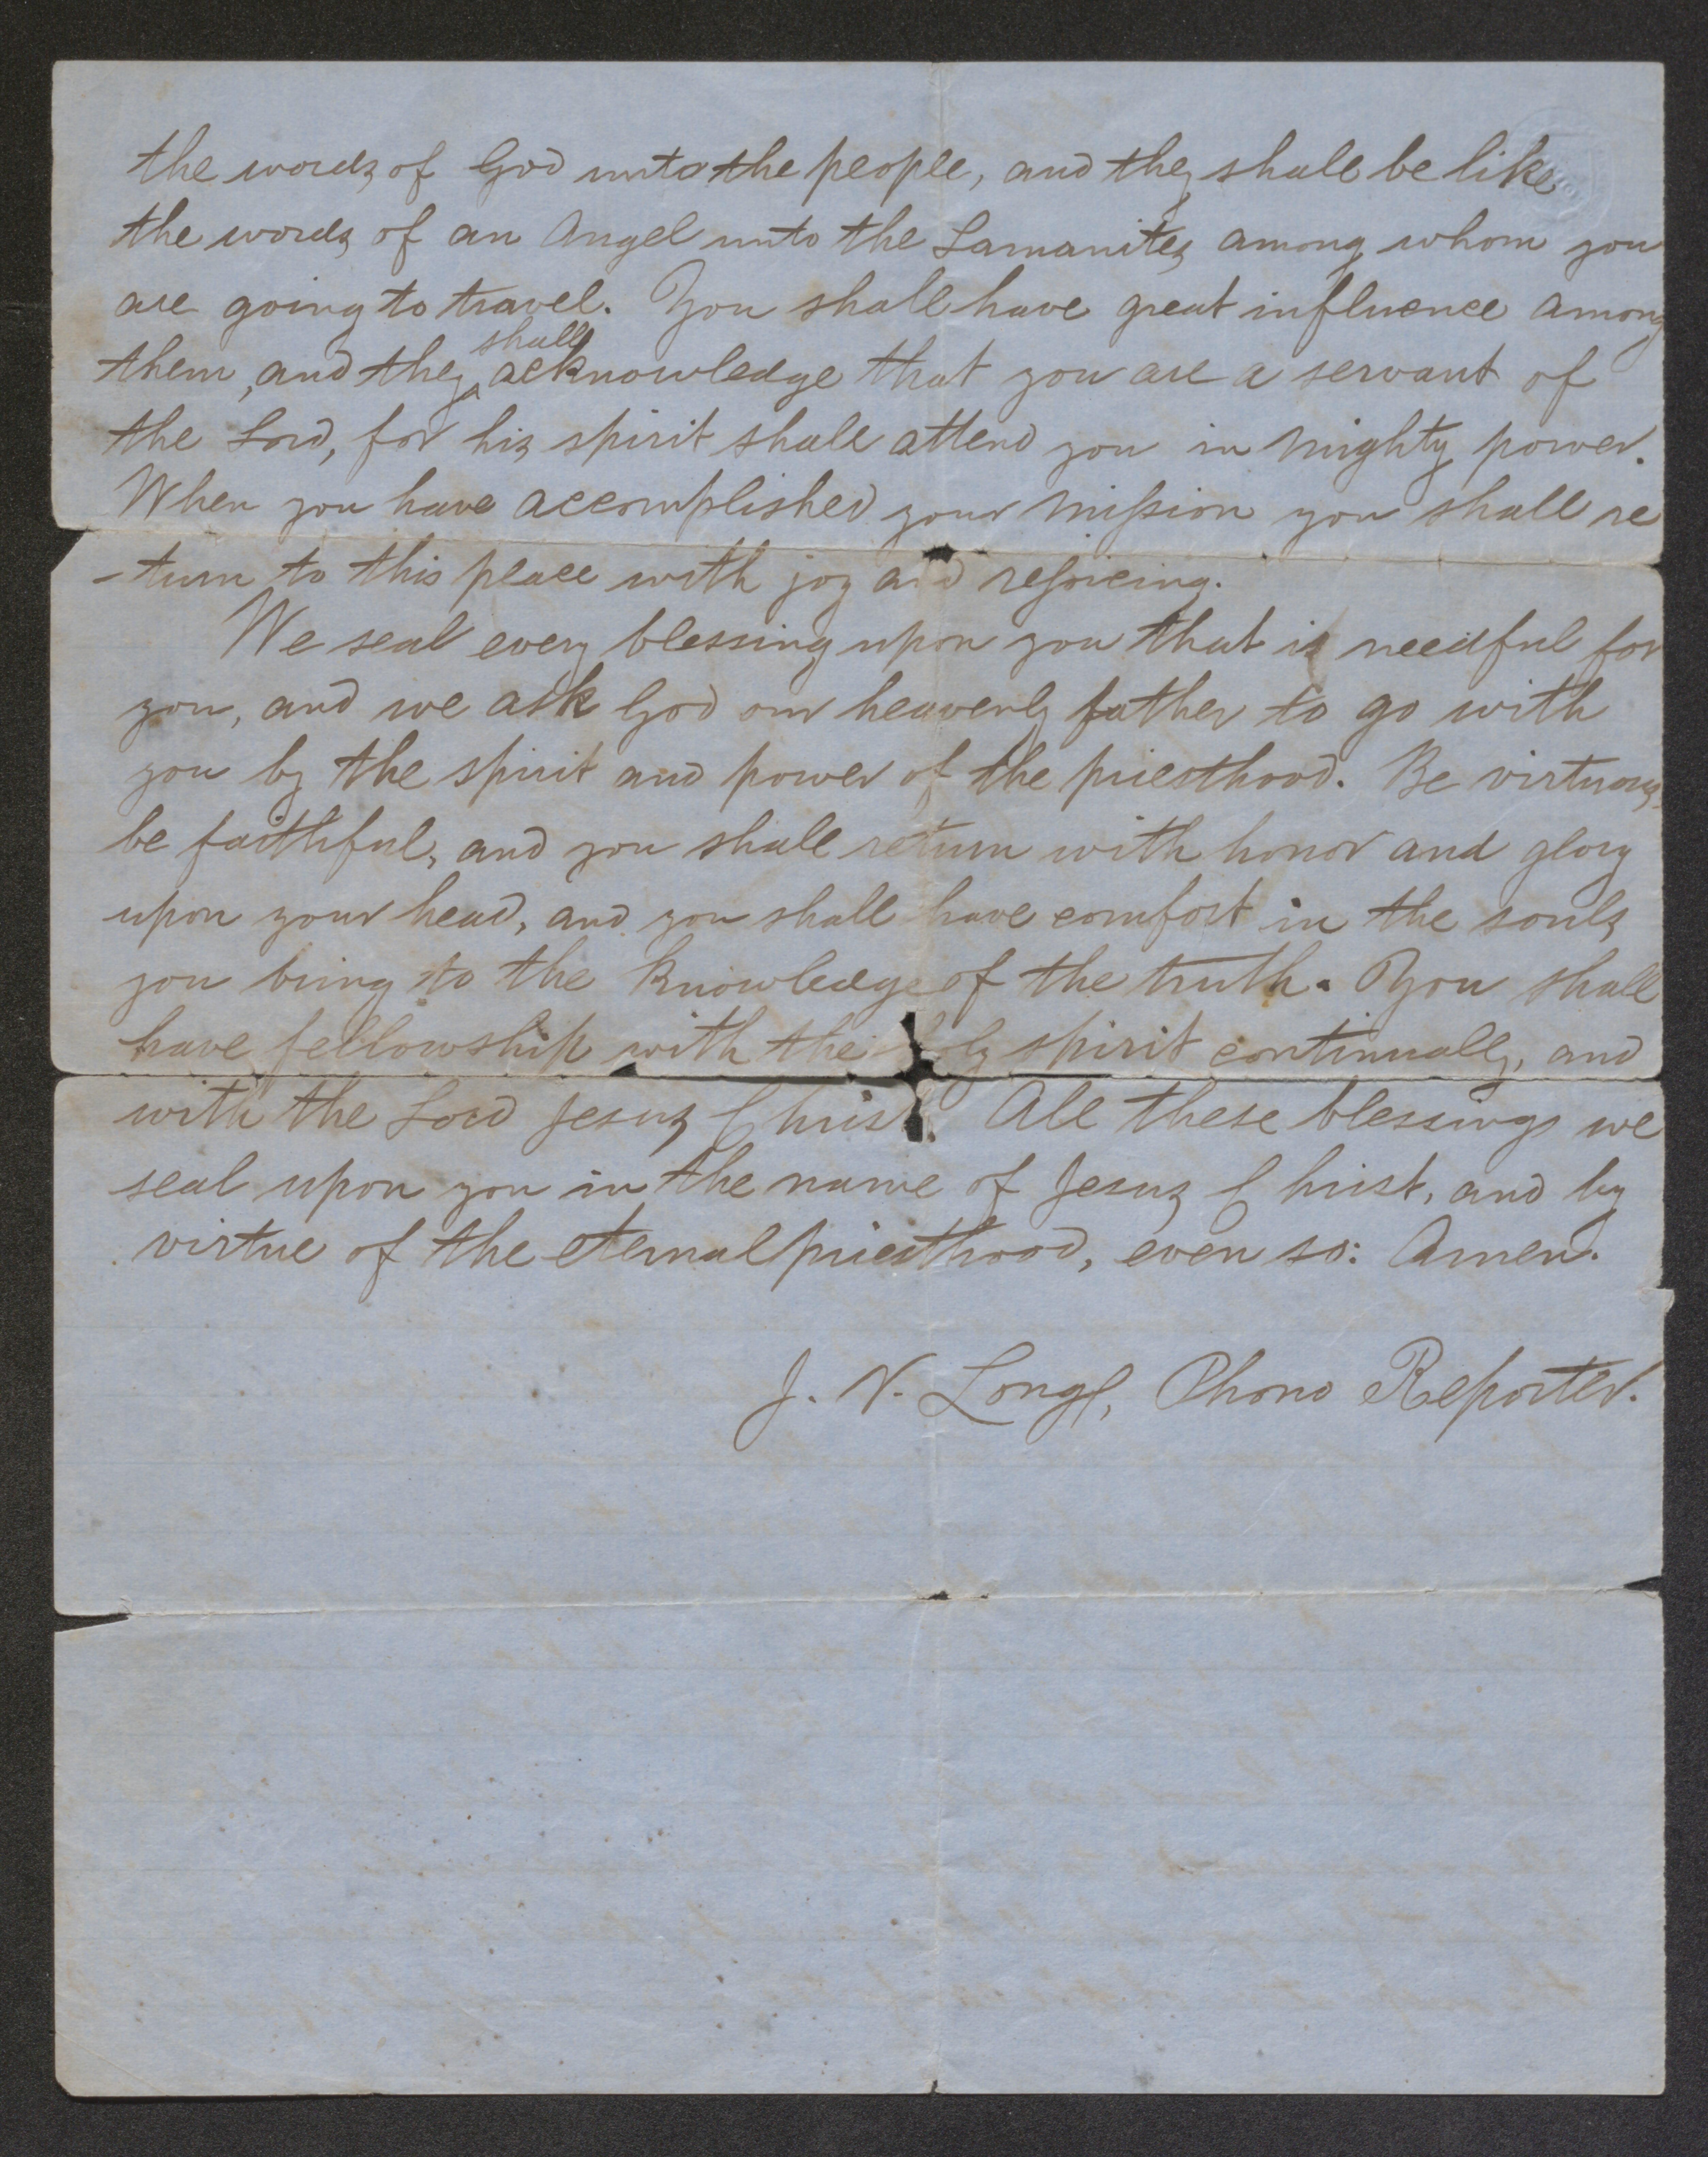 the words of God unto the people, and they shall be like
the words of an Angel unto the Lamanites among whom you
are going to travel. You shall have great influence among
shall
them, and they acknowledge that you are a servant of
the Lord, for his spirit shall attend you in mighty power.
When you have accomplished your mission you shall re
-turn to this place with joy and rejoicing.
We seal every blessing upon you that is needful for
you, and we ask God our heavenly father to go with
you by the spirit and power of the priesthood. Be virtuous,
be faithful, and you shall return with honor and glory
upon your head, and you shall have comfort in the souls
you bring to the knowledge of the truth. You shall
have fellowship with the holy spirit continually, and
with the Lord Jesus Christ. All these blessings we
seal upon you in the name of Jesus Christ, and by
virtue of the eternal priesthood, even so: Amen.
J. V. Long, Phono Reporter.